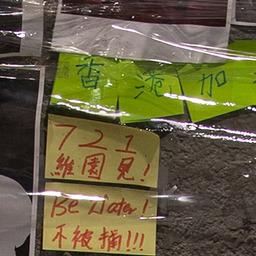 香港加
721
維園見!
Be Water!
不被捕!!!